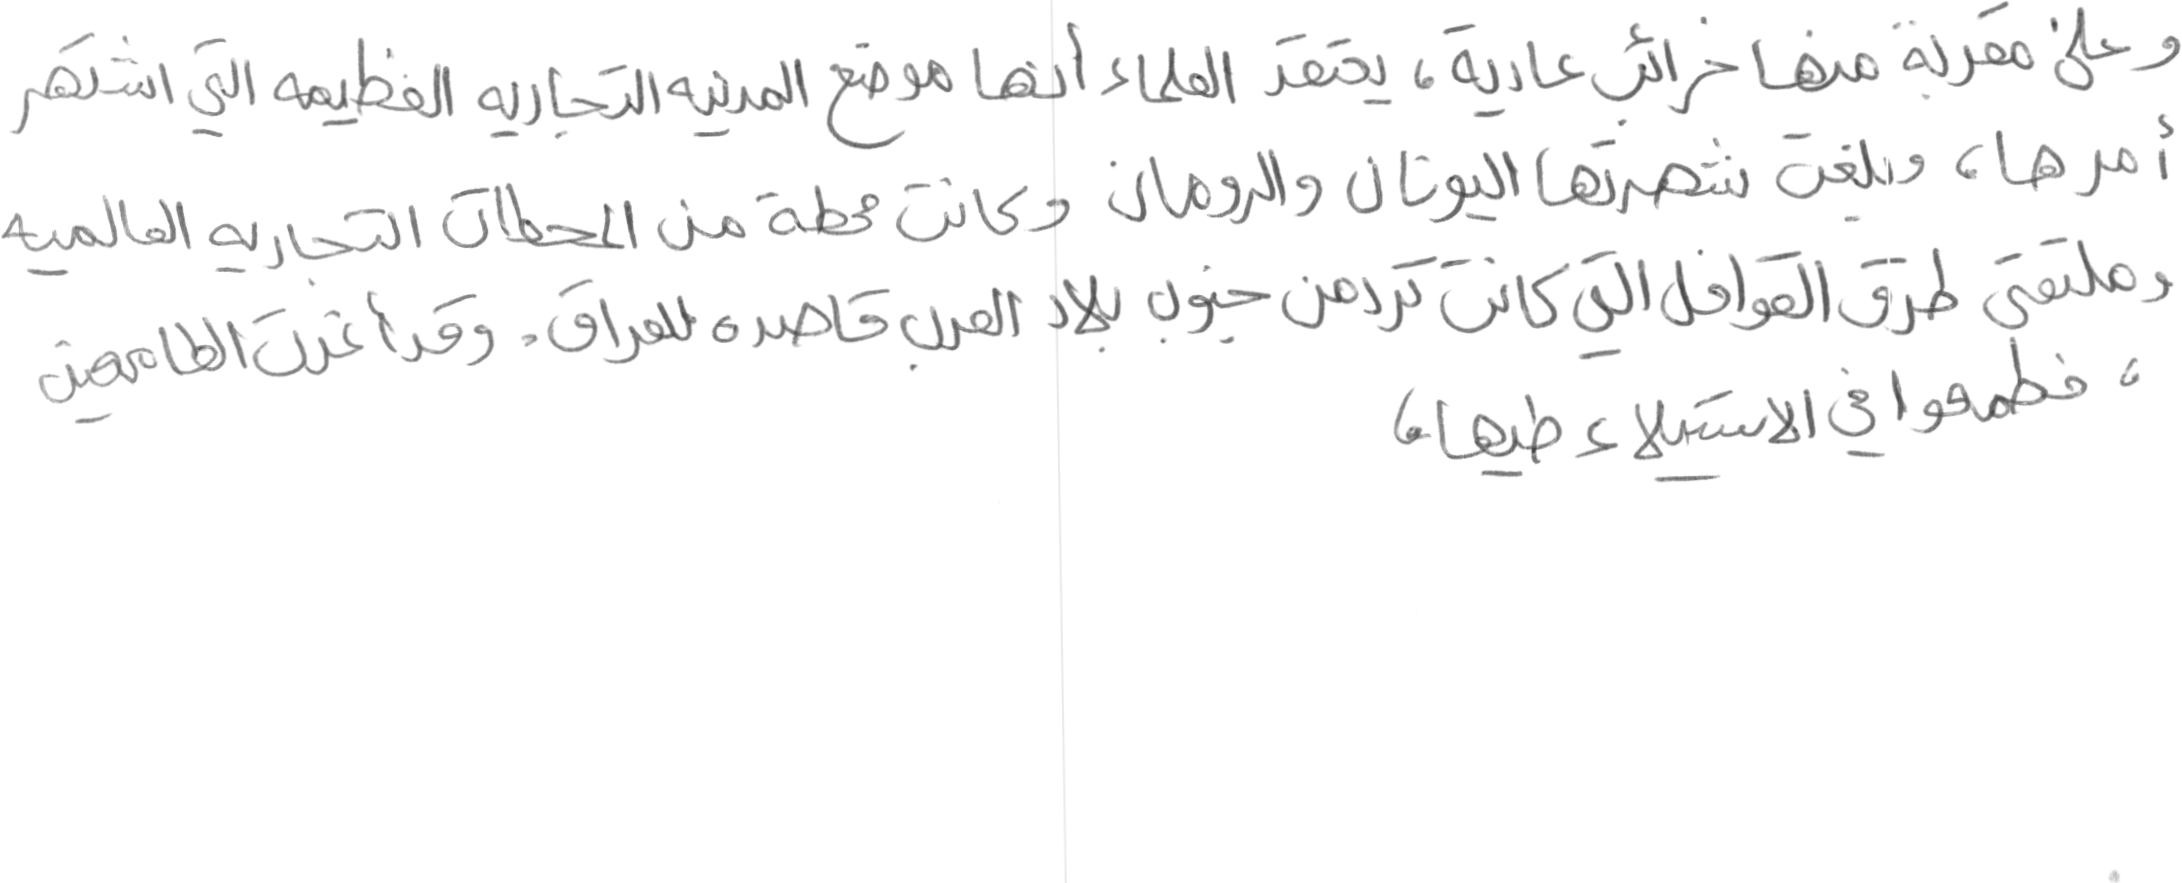 وعلى مقربة منها خرائب عادية، يعتقد العلماء أنها موضع المدنيه التجاريه العظيمه التي اشتهر
أمرها، وبلغت شهرتها اليونان والرومان وكانت محطة من المحطات التجاريه العالميه
وملتقى طرق القوافل التي كانت ترد من جنوب بلاد العرب قاصده للعراق. وقد أغرت الطامعين
، فطمعوا في الاستيلاء عليها،